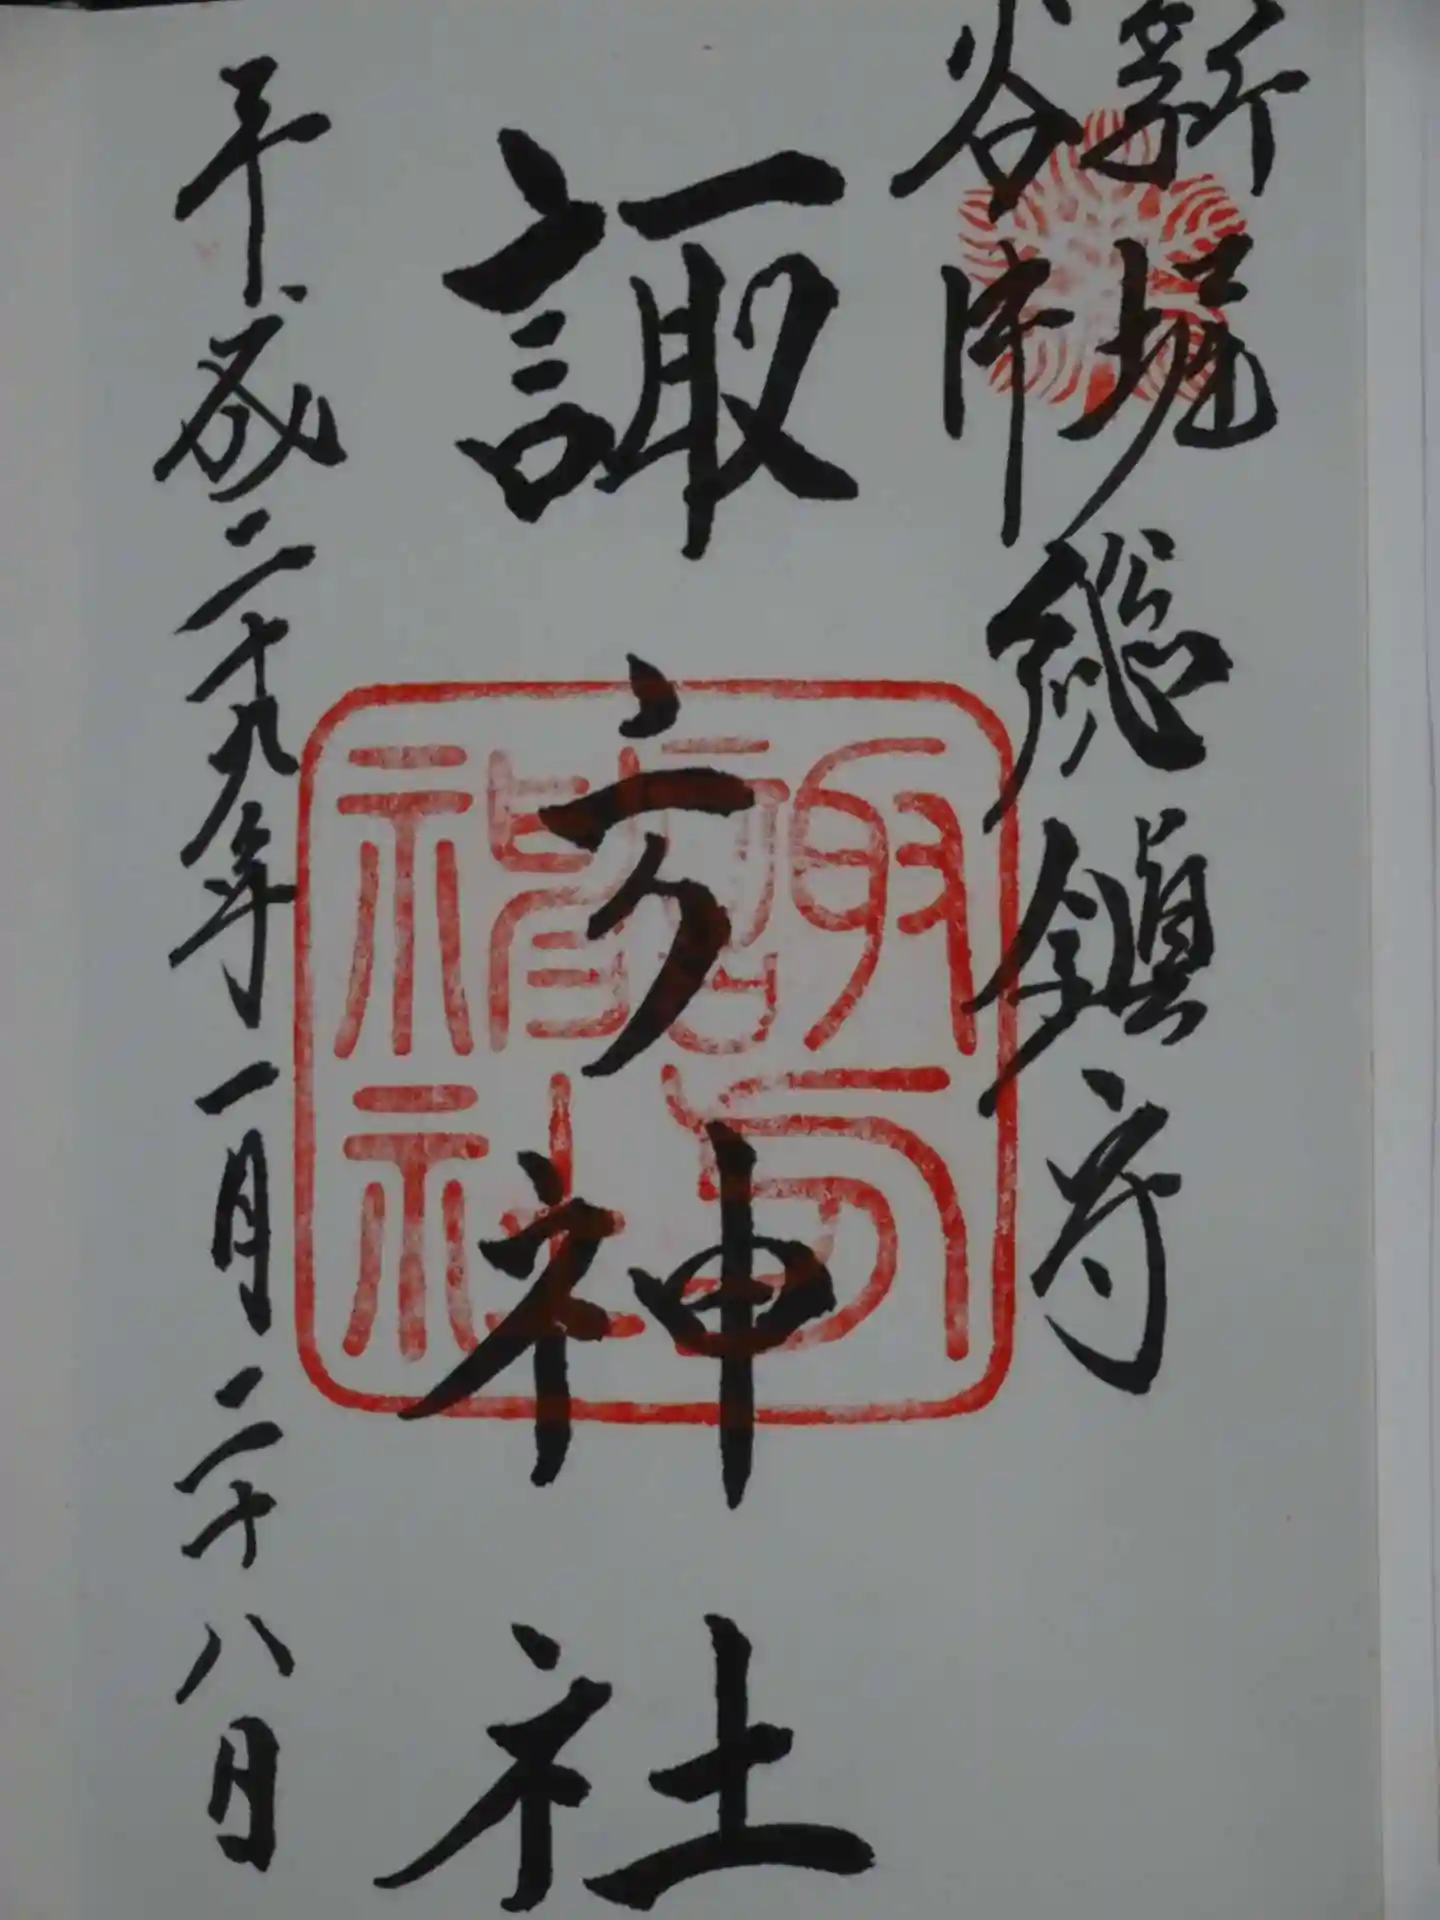 新堀
谷中
総鎮守
諏方神社
平成二十九年一月二十八日
諏方
神社